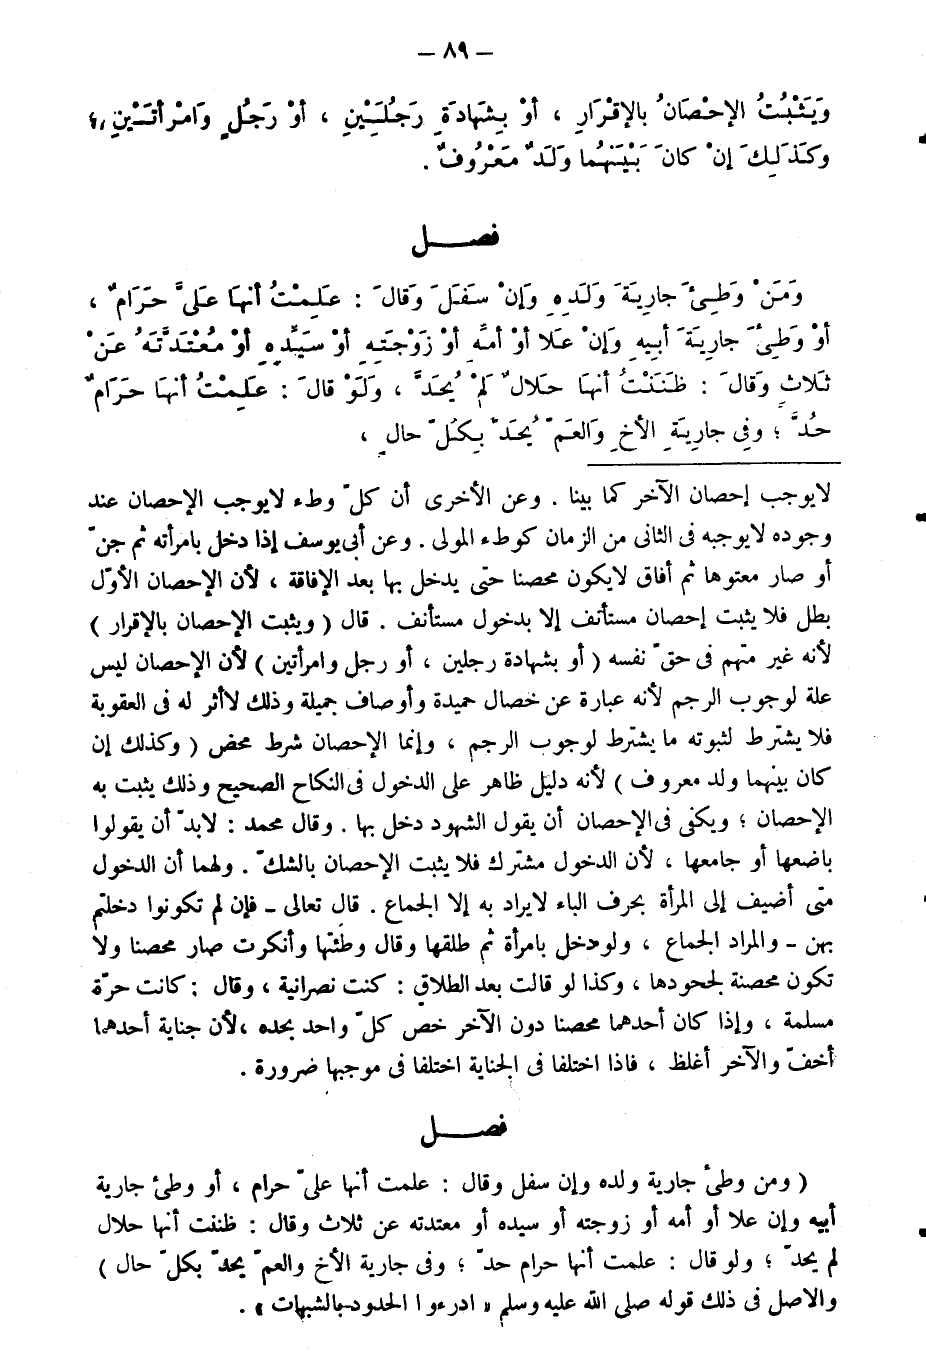 – ٨٩ –
وَيَثْبُتُ الإحْصَانُ بالإقْرَارِ ، أوْ بِشَهَادَةِ رَجُلَيْنِ ، أوْ رَجُلٍ وَامْرأتَيْنِ ،
وكَذَلِكَ إنْ كانَ بَيْنَهُما وَلَدٌ مَعْرُوفٌ .
فصل
وَمَنْ وَطِئَ جارِيَةَ وَلَدِهِ وَإنْ سَفَلَ وَقالَ : عَلِمْتُ أنها عَلىَّ حَرَامٌ ،
أوْ وَطِئَ جارِيَةَ أبِيهِ وَإنْ عَلا أوْ أمِّهِ أوْ زَوْجَتِهِ أوْ سَيِّدِهِ أوْ مُعْتَدَّتَهُ عَنْ
ثَلاثٍ وَقالَ : ظَنَنْتُ أنها حَلالٌ لَمْ يُحَدَّ ، وَلَوْ قالَ : عَلِمْتُ أنها حَرَامٌ
حُدَّ ؛ وفِى جارِيَةِ الأخِ وَالعَمّ يُحَدّ بِكُلّ حالٍ ،
لايوجب إحصان الآخر كما بينا . وعن الأخرى أن كلّ وطء لايوجب الإحصان عند
وجوده لايوجبه فى الثانى من الزمان كوطء المولى . وعن أبى يوسف إذا دخل بامرأته ثم جنّ
أو صار معتوها ثم أفاق لايكون محصنا حتى يدخل بها بعد الإفاقة ، لأن الإحصان الأوّل
بطل فلا يثبت إحصان مستأنف إلا بدخول مستأنف . قال ( ويثبت الإحصان بالإقرار )
لأنه غير متهم فى حقّ نفسه ( أو بشهادة رجلين ، أو رجل وامرأتين ) لأن الإحصان ليس
علة لوجوب الرجم لأنه عبارة عن خصال حميدة وأوصاف جميلة وذلك لاأثر له فى العقوبة
فلا يشترط لثبوته ما يشترط لوجوب الرجم ، وإنما الإحصان شرط محض ( وكذلك إن
كان بينهما ولد معروف ) لأنه دليل ظاهر على الدخول فى النكاح الصحيح وذلك يثبت به
الإحصان ؛ ويكفى فى الإحصان أن يقول الشهود دخل بها . وقال محمد : لابدّ أن يقولوا
باضعها أو جامعها ، لأن الدخول مشترك فلا يثبت الإحصان بالشكّ . ولهما أن الدخول
متى أضيف إلى المرأة بحرف الباء لايراد به إلا الجماع . قال تعالى – فإن لم تكونوا دخلتم
بهن – والمراد الجماع ، ولودخل بامرأة ثم طلقها وقال وطئتها وأنكرت صار محصنا ولا
تكون محصنة لجحودها ، وكذا لو قالت بعد الطلاق : كنت نصرانية ، وقال : كانت حرّة
مسلمة ، وإذا كان أحدهما محصنا دون الآخر خص كلّ واحد بحده ، لأن جناية أحدهما
أخفّ والآخر أغلظ ، فاذا اختلفا فى الجناية اختلفا فى موجبها ضرورة .
فصل
( ومن وطئ جارية ولده وإن سفل وقال : علمت أنها علىّ حرام ، أو وطئ جارية
أبيه وإن علا أو أمه أو زوجته أو سيده أو معتدته عن ثلاث وقال : ظننت أنها حلال
لم يحدّ ؛ ولو قال : علمت أنها حرام حدّ ؛ وفى جارية الأخ والعمّ يحدّ بكلّ حال )
والاصل فى ذلك قوله صلى الله عليه وسلم « ادرءوا الحدود بالشبهات » .